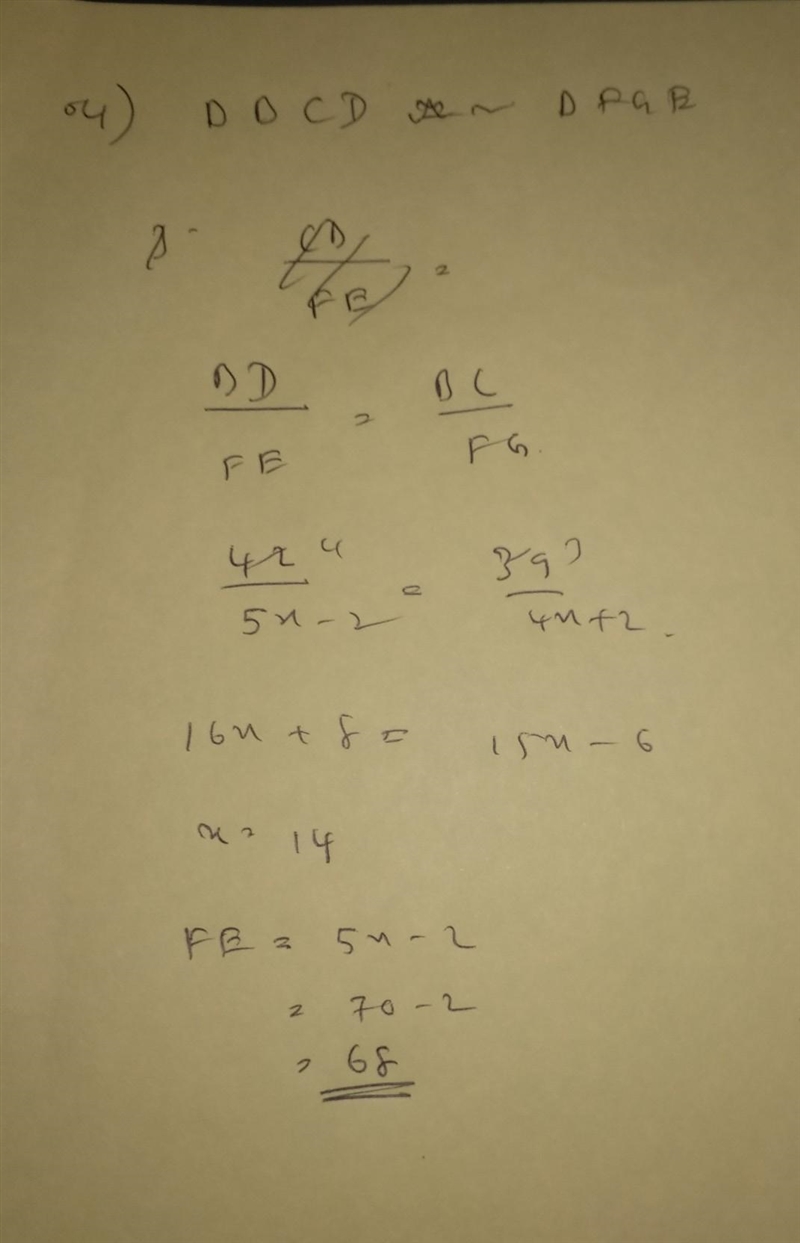 04) D B C D ~ D F G E
CD / FE =
BD / FE = BC / FG.
42 4 / 5x - 2 = 39 3 / 4x + 2.
16x + 8 = 15x - 6
x = 14
FE = 5x - 2
= 70 - 2
= 68